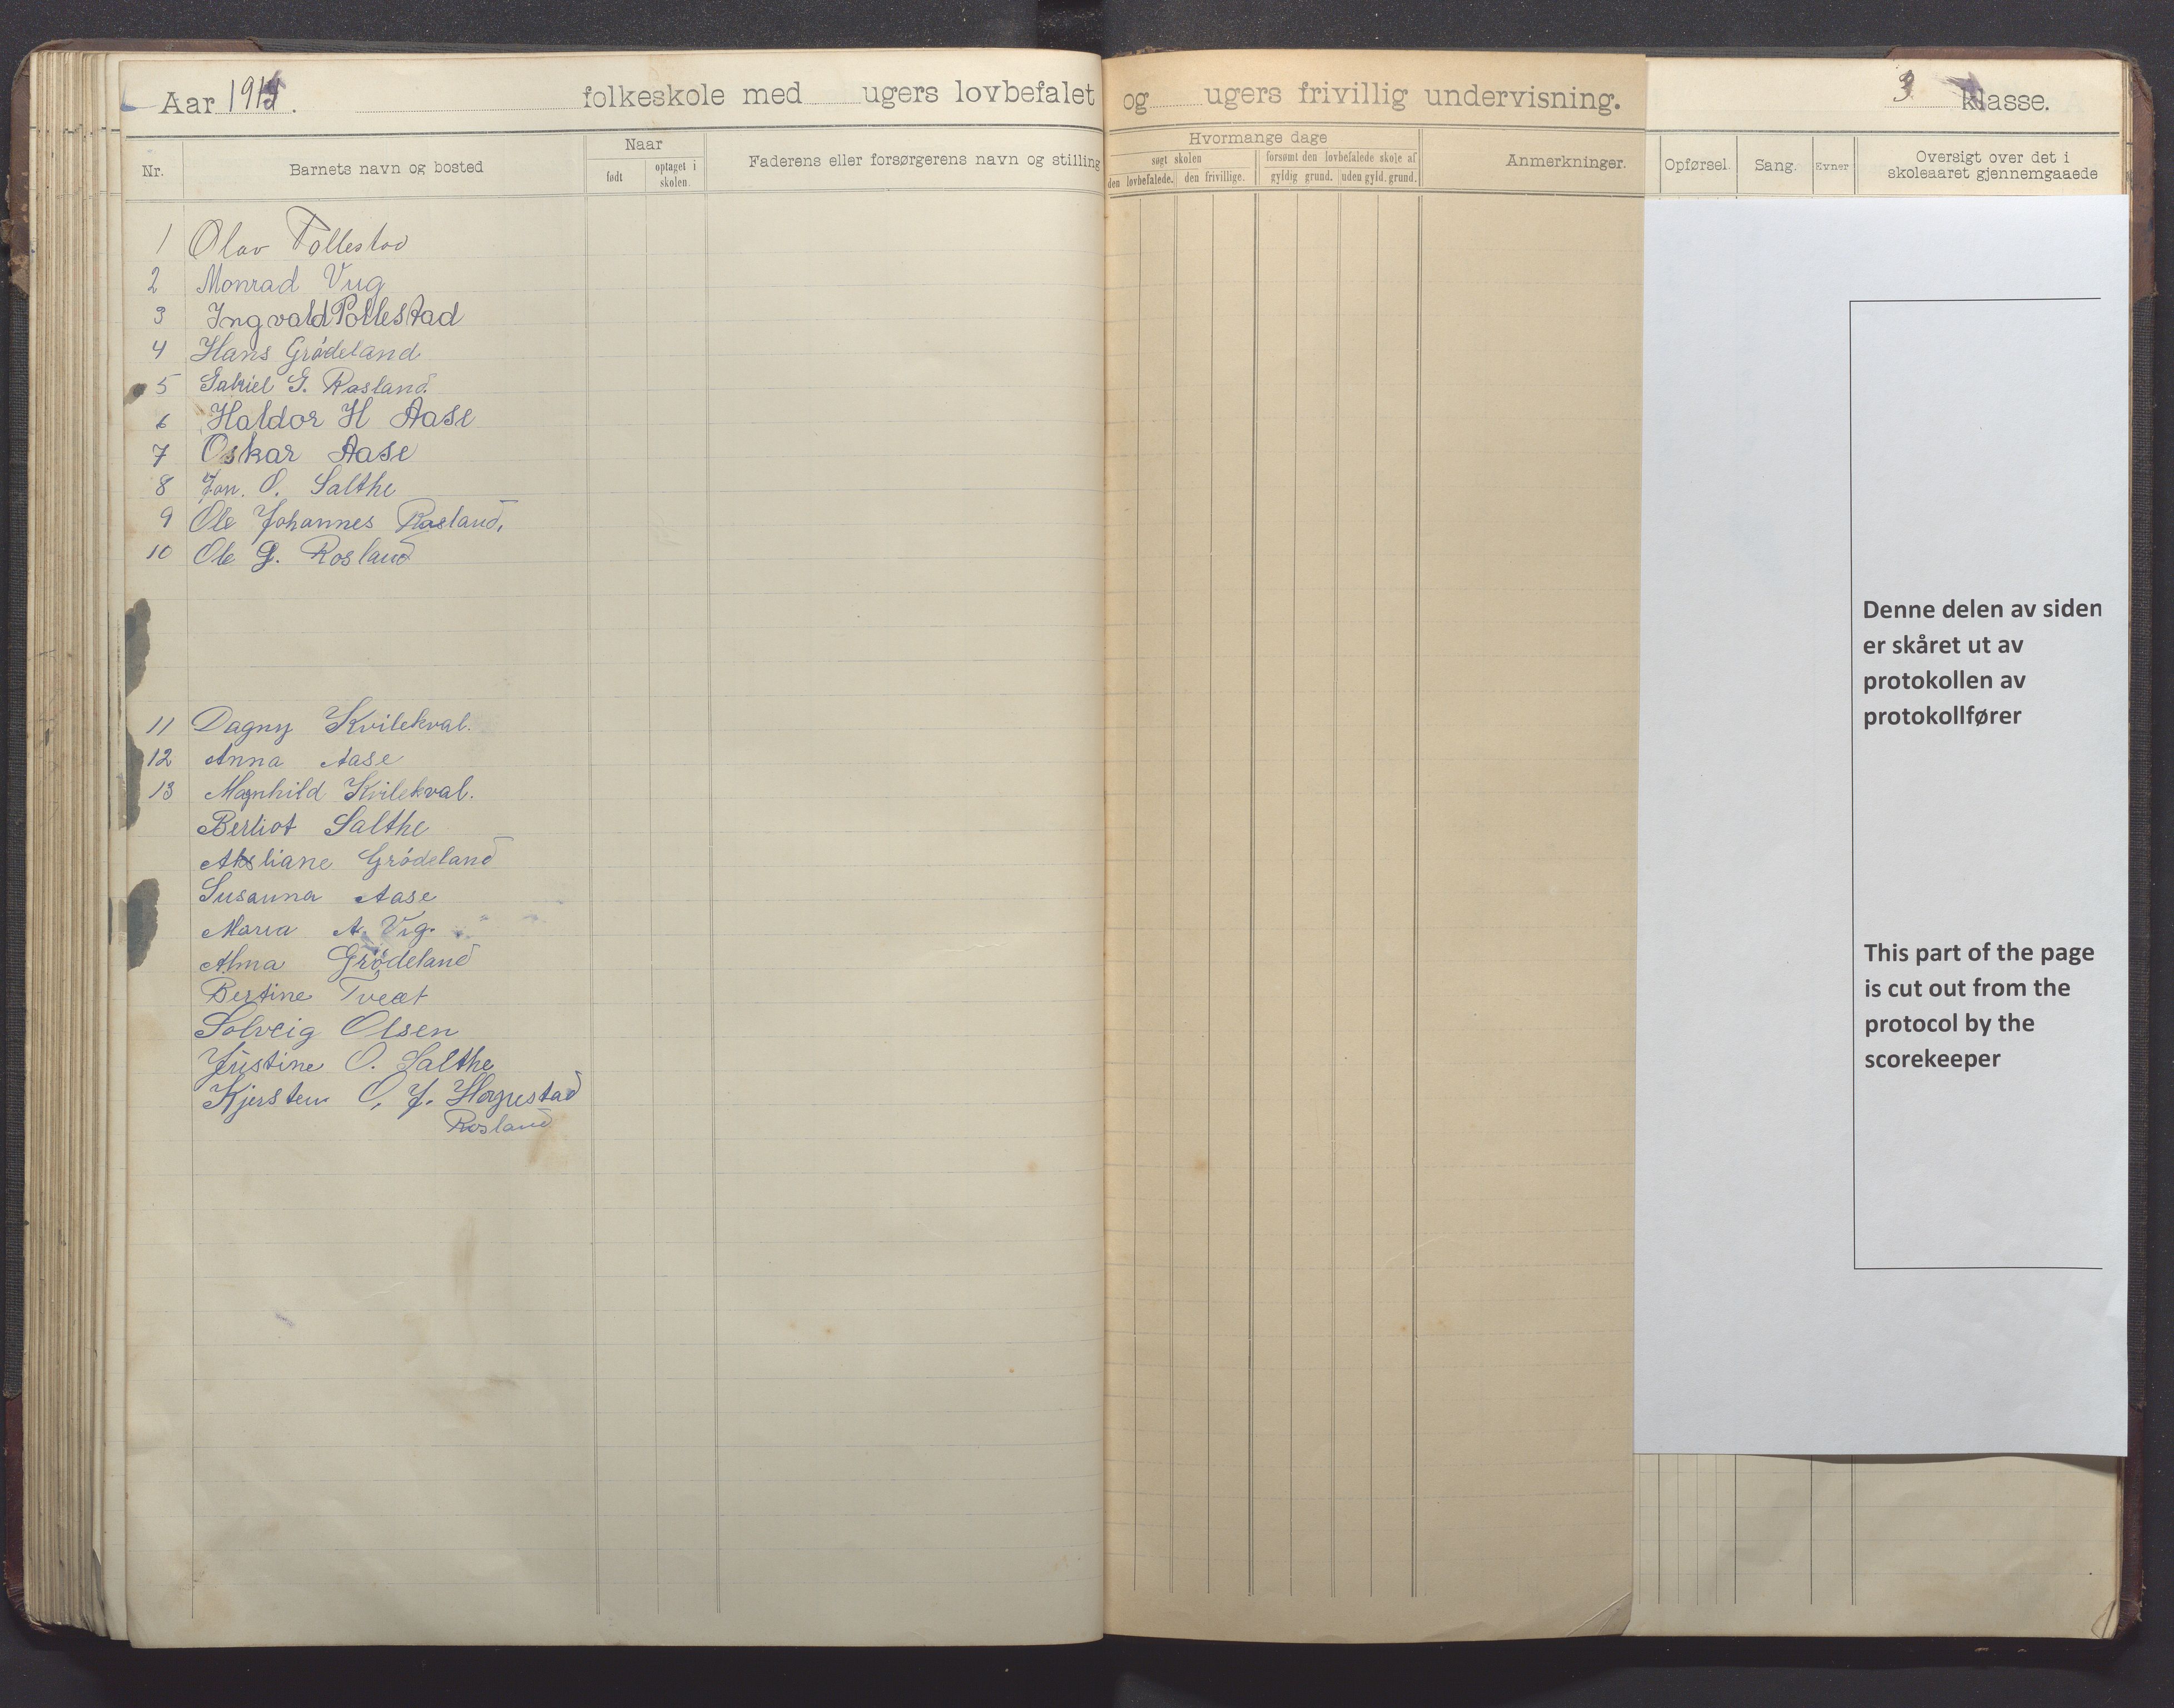 Aar 191 . folkeskole med ugers lovbefalet og ugers frivillig undervisning. 3 klasse.
Nr. Barnets navn og bosted Naar født optaget i skolen. Faderens eller forsørgerens navn og stilling Hvormange dage søgt skolen den lovbefalede. den frivillige. forsømt den lovbefalede skole af gyldig grund. uden gyld. grund. Anmerkninger. Opførsel. Sang. Evner Oversigt over det i skoleaaret gjennemgaaede
1 Olav
2 Monrad Vug
3 Ingvald Pollestad
4 Hans Grödeland
5 G. Rosland
6 Haldor H Aase
7 Oskar Aase
8 Jon. O. Salthe
9 Ole Johannes Rosland.
10 Ole G. Rosland
11 Dagny Kvilekval.
12 Anna Aase
13 Magnhild Kvilekval.
Berliot Salthe
Grödeland
Susanna Aase
Maria A. Vig.
Alma Grödeland
Bertine Tveet
Solveig Olsen
Justine O. Salthe
Kjersten O. J.
Rosland
Denne delen av siden
er skåret ut av
protokollen av
protokollfører
This part of the page
is cut out from the
protocol by the
scorekeeper